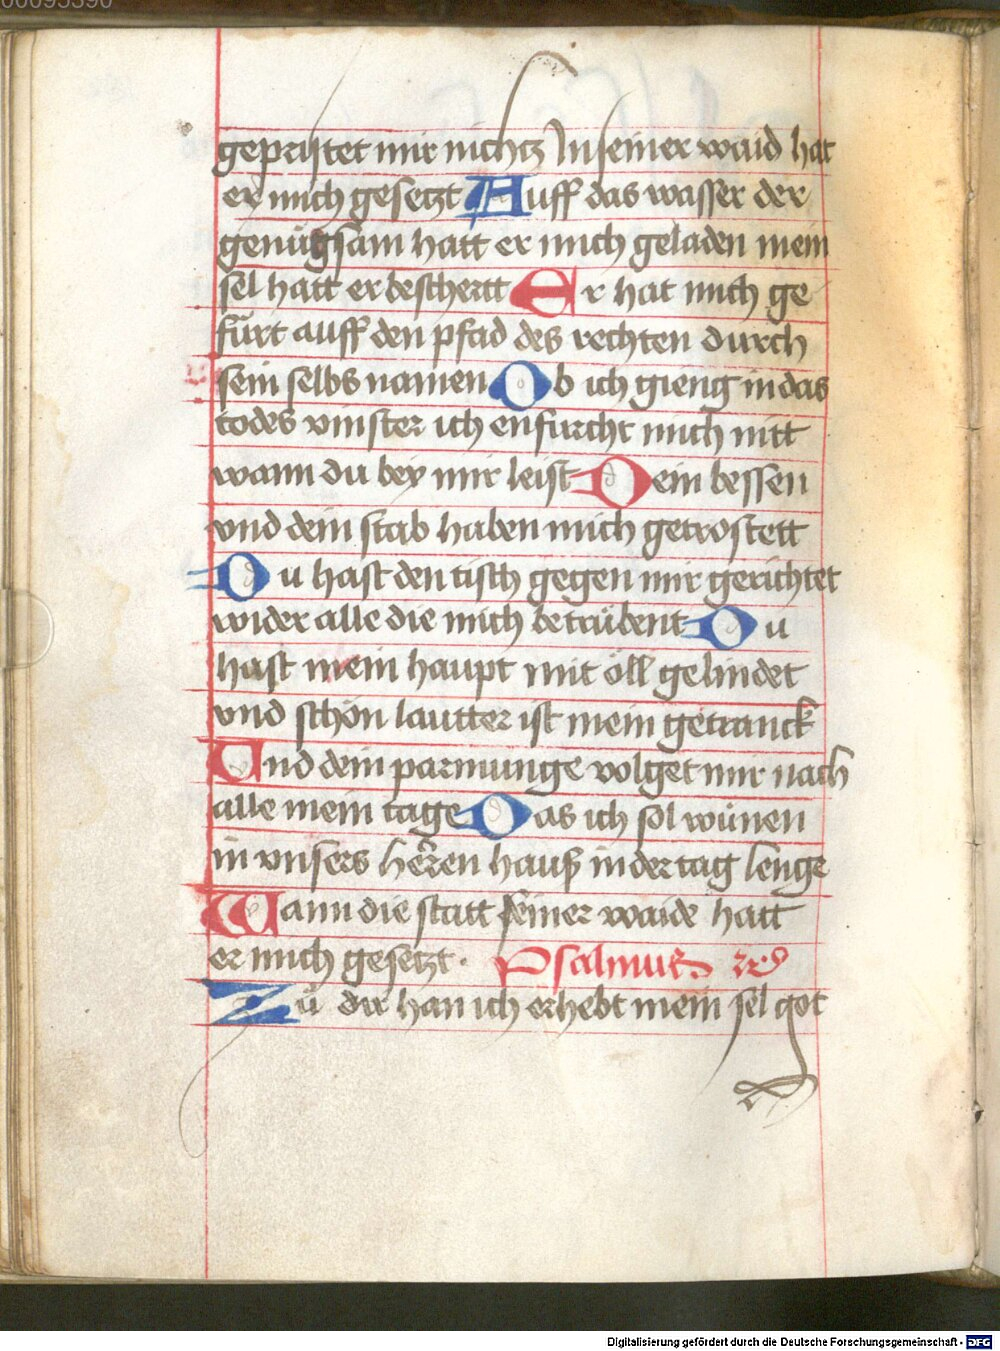 00095390
gepristet mir nichtz In seiner waid hat
er mich gesetzt Auff das wasser der
genu̍gsam hatt er mich geladen mein
sel hatt er beschertt Er hat mich ge
fu̍rt auff den pfad des rechten durch
sein selbs namen Ob ich gieng in das
todes vinster ich enfurcht mich nitt
wann du bey mir leist Dein bessen
vnd dein stab haben mich getrostett
Du hast den tisch gegen mir gerichtet
wider alle die mich betru̍bent Du
hast mein haupt mit öll gelindet
vnd schön lautter ist mein getranck
Und dein parmunge volget mir nach
alle mein tage Das ich sol wu̍nen
in vnsers herren hauß in der tag lenge
Wann die statt seiner waide hatt
er mich gesetzt. Psalmus
Zu̍ dir han ich erhebt mein sel got
Digitalisierung gefördert durch die Deutsche Forschungsgemeinschaft - DFG